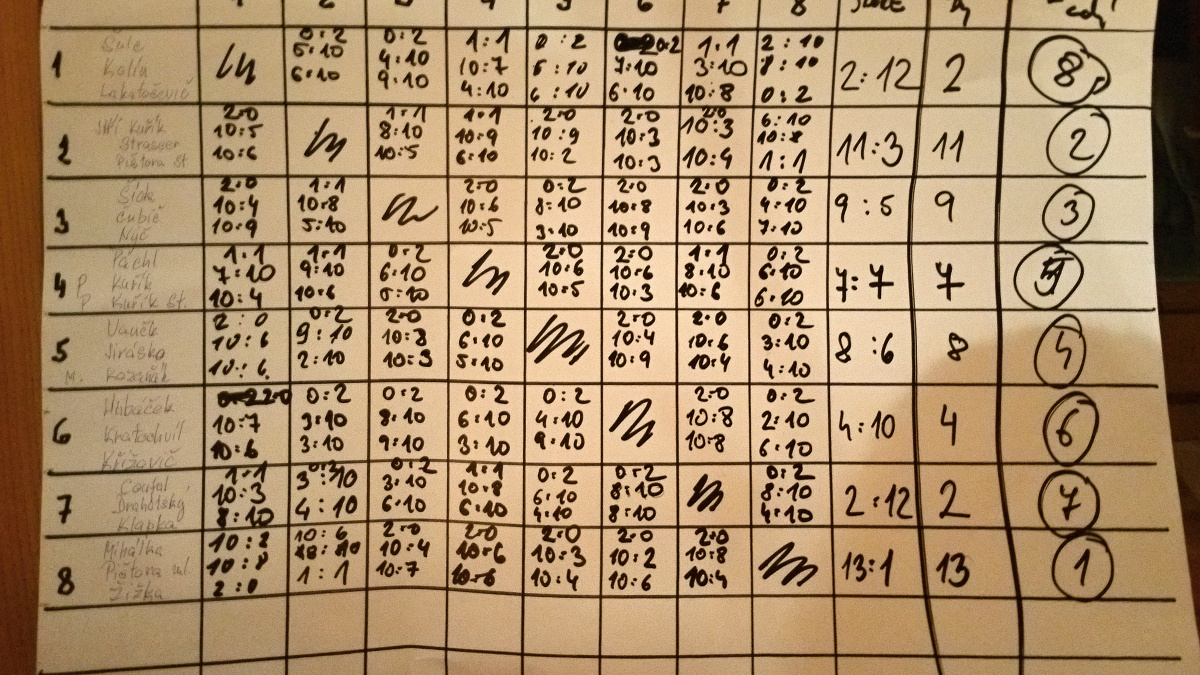 1 2 3 4 5 6 7 8
1 Šulc 0:2 0:2 1:1 0:2 0:2 1:1 2:10
Kolín 5:10 4:10 10:7 6:10 7:10 3:10 8:10 2:12 2 8
6:10 9:10 4:10 6:10 6:10 10:8 0:2
2 Jiří Kuřík 2:0 1:1 1:1 2:0 2:0 2:0 6:10
Strasser 10:5 8:10 10:9 10:9 10:3 10:3 10:8 11:3 11 2
Pištora st 10:6 10:5 6:10 10:2 10:3 10:4 1:1
3 2:0 1:1 2:0 0:2 2:0 2:0 0:2
Čubič 10:4 10:8 10:6 8:10 10:8 10:3 4:10 9:5 9 3
Nyč 10:9 5:10 10:5 3:10 10:9 10:6 7:10
4 Páchl 1:1 1:1 0:2 2:0 2:0 1:1 0:2
P Kuřík 7:10 9:10 6:10 10:6 10:6 8:10 6:10 7:7 7
P Kuřík st. 10:4 10:6 5:10 10:5 10:3 10:6 6:10
5 Vaněk 2:0 0:2 2:0 0:2 2:0 2:0 0:2
Jiráska 10:6 9:10 10:8 6:10 10:4 10:6 3:10 8:6 8 4
M. Kozahák 10:6 2:10 10:3 5:10 10:9 10:4 4:10
6 Hlbáček 2:0 0:2 0:2 0:2 0:2 2:0 0:2
Kratochvíl 10:7 3:10 8:10 6:10 4:10 10:8 2:10 4:10 4 6
Křižovič 10:6 3:10 9:10 3:10 9:10 10:8 6:10
7 Coufal 1:1 0:2 3:10 0:2 1:1 0:2 0:2 0:2
Drahotský 10:3 4:10 3:10 10:8 6:10 8:10 8:10 2:12 2 7
Klapka 8:10 6:10 6:10 4:10 8:10 4:10
8 Mihálka 10:8 10:6 2:0 2:0 2:0 2:0 2:0
Pištora ml. 10:8 10:4 10:6 10:3 10:2 10:8 13:1 13 1
Žižka 2:0 1:1 10:7 10:6 10:4 10:6 10:4